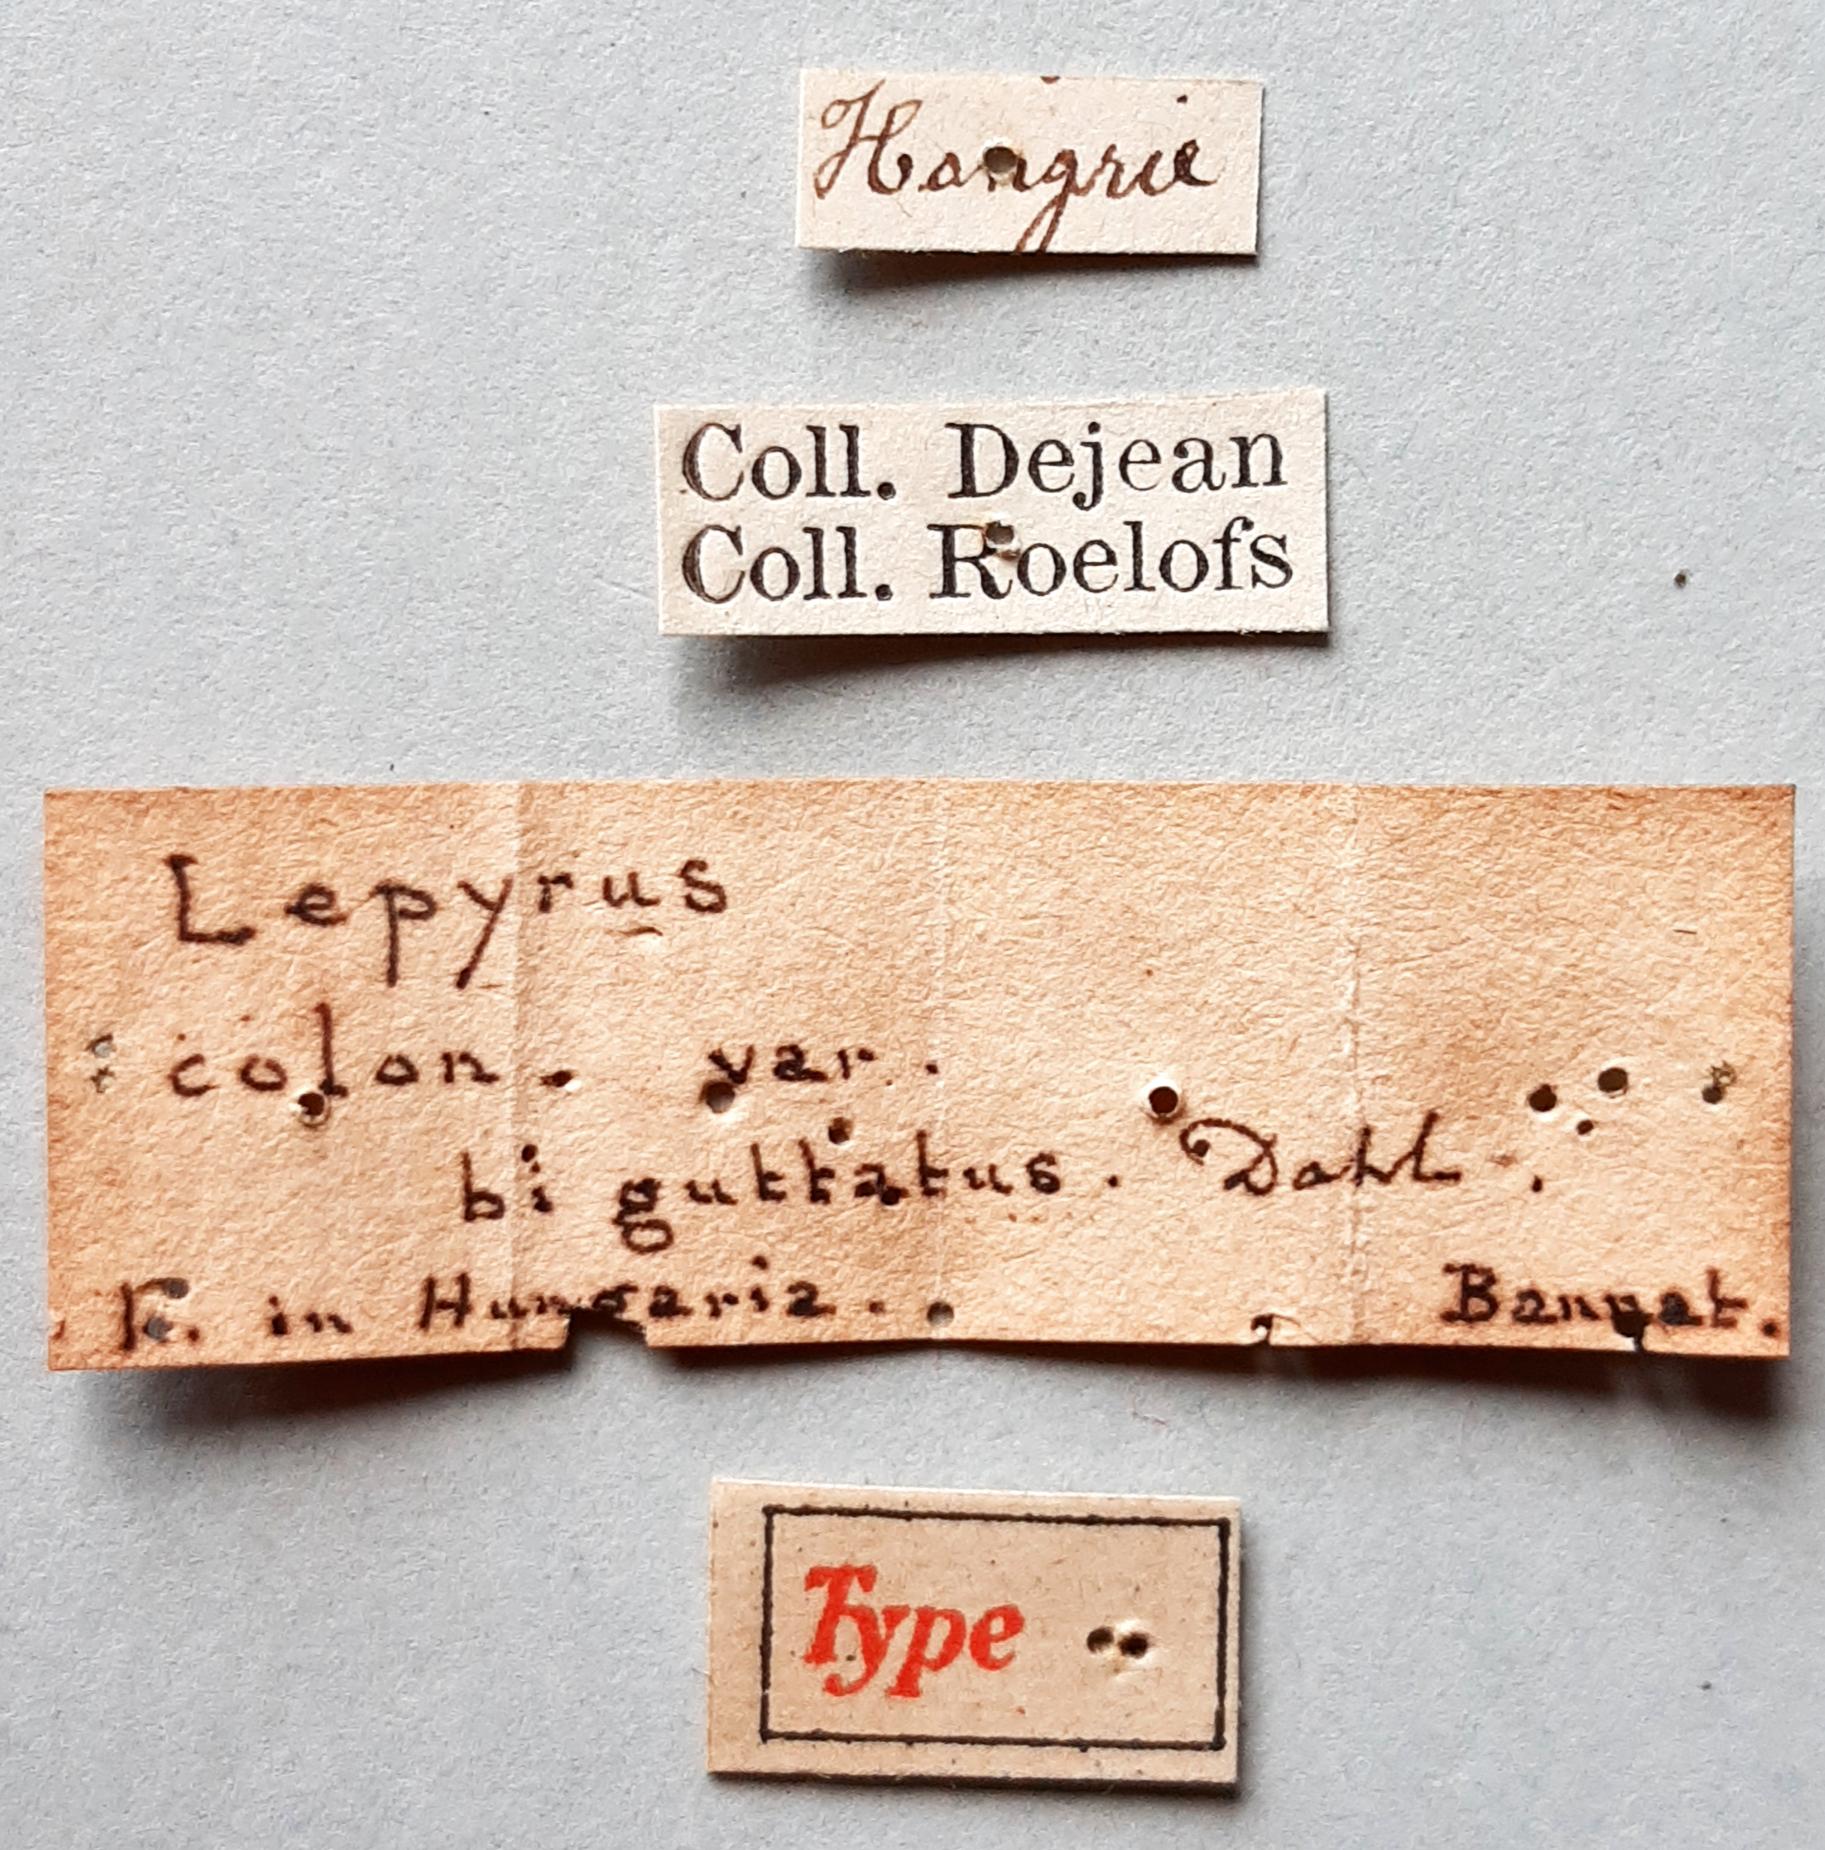 Hongrie
Coll. Dejean
Coll. Roelofs
Lepyrus
colon. var.
bi guttatus. Dahl.
in Hungaria. Bannat.
Type